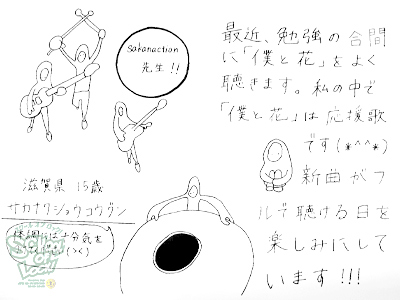 sakanaction
先生!!
最近、勉強の合間
に「僕と花」をよく
聴きます。私の中で
「僕と花」は応援歌
です(*^^*)
新曲がフ
ルで聴ける日を
楽しみにして
います!!!
滋賀県 15歳
サカナクショウコウグン